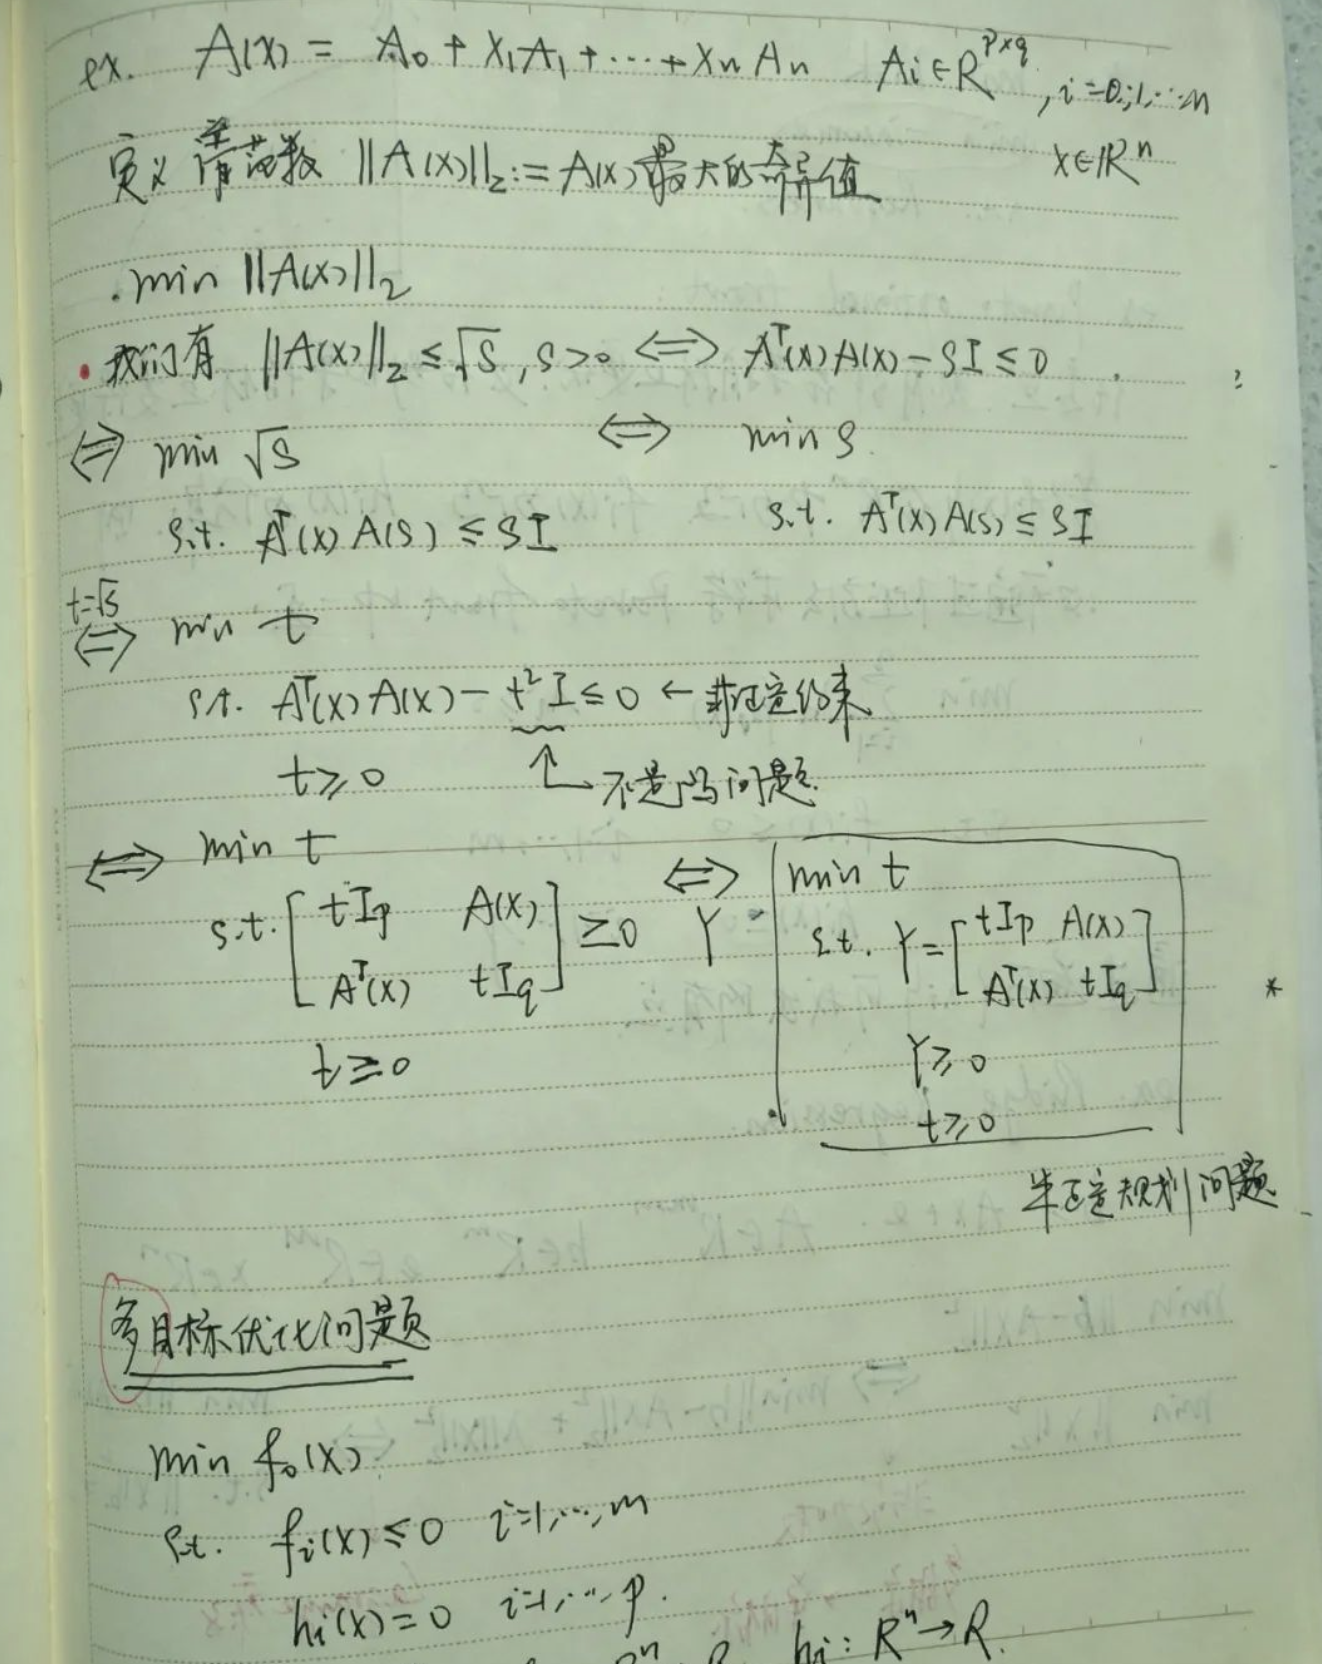 ex. A(x) = A₀ + x₁A₁ + ⋯ + xₙAₙ Aᵢ∈R^{p×q}, i=0,1,⋯n
定义 谱范数 ||A(x)||₂ := A(x)最大的奇异值 x∈ℝⁿ
. min ||A(x)||₂
• 我们有 ||A(x)||₂ ≤ √S, S>0 ⟺ Aᵀ(x)A(x) − SI ≤ 0
⟺ min √S ⟺ min S
s.t. Aᵀ(x)A(s) ≤ SI s.t. Aᵀ(x)A(s) ≤ SI
t=√S
⟺ min t
s.t. Aᵀ(x)A(x) − t²I ≤ 0 ← 非正定约束
t ≥ 0 ↑ 不是凸问题
⟺ min t ⟺ min t
s.t. [tI_p A(x) ; Aᵀ(x) tI_q] ≥ 0 Y s.t. Y = [tI_p A(x) ; Aᵀ(x) tI_q] *
t ≥ 0 Y ≥ 0
t ≥ 0
半正定规划问题
多目标优化问题
min f₀(x)
s.t. fᵢ(x) ≤ 0 i=1,⋯,m
hᵢ(x) = 0 i=1,⋯,p.
hᵢ: Rⁿ→R.